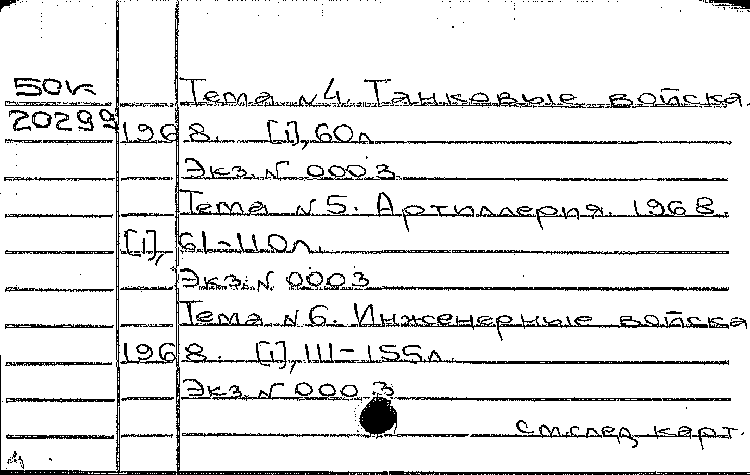 50к Тема №4. Танковые войска.
20299 1968. [1], 60л
Экз. № 0003
Тема №5. Артиллерия. 1968.
[1], 61-110л.
Экз. № 0003
Тема №6. Инженерные войска
1968. [1], 111-155л.
Экз. № 0003
см.след карт.